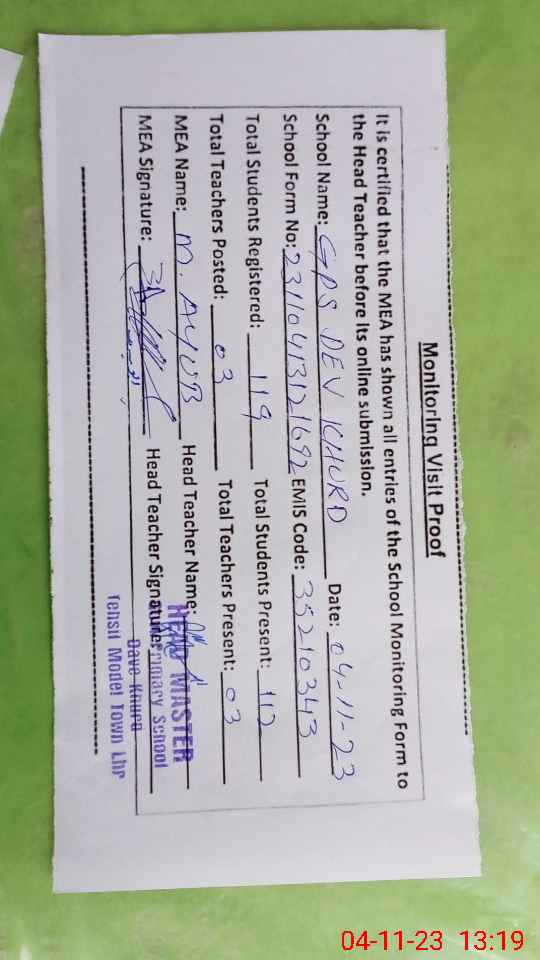 Monitoring Visit Proof
It is certified that the MEA has shown all entries of the School Monitoring Form to
the Head Teacher before its online submission.
School Name: GPS DEV KHURD Date: 04-11-23
School Form No: 23110413121692 EMIS Code: 35210343
Total Students Registered: 119 Total Students Present: 112
Total Teachers Posted: 03 Total Teachers Present: 03
MEA Name: M. AYUB Head Teacher Name:
MEA Signature: Head Teacher Signature:
HEAD MASTER
Primary School
Dave Khurd
Tehsil Model Town Lhr
04-11-23 13:19